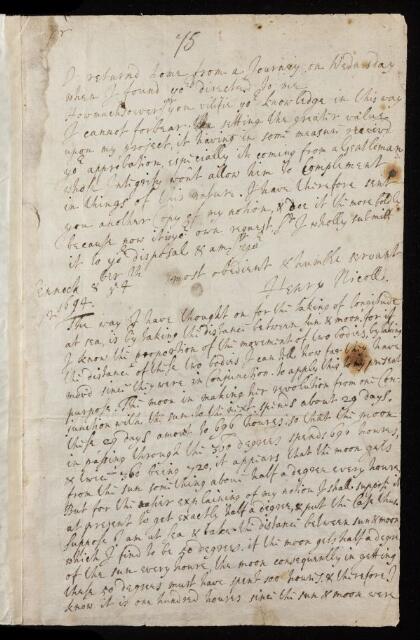 75
I returnd home from a Journey on Wedensday
when I found yo directed to me
Howmuchsoever you vilifie yo knowledge in this way
I cannot forbear the setting the greater value
upon my project, it having in some measur receivd
yo approbation, especially it coming from a Gentleman
whose Integrity wont allow him to complement
in things of this nature. I have therefore sent
you another copy of my notion, & doe it the more
because now its yo own request Sr I wholly submitt
it to yo disposal & am
most obedient & humble servant
Henry Nicoll
1694
The way I have thought on for the taking of longitude
at sea, is by taking the distance between sun & moon, for if
I know the proportion of the movement of two bodies, by taking
the distance of these two bodies I can tell how far they have
movd since they were in conjunction. to apply this to present
purpose. The moon in making her revolution from one Con-
junction with the sun to the next spends about 29 days.
these 29 days amount to 696 houres; so that the moon
in passing through the 360 degrees spends 696 houres,
& twice 360 being 720, it appears that the moon gets
from the sun something above half a degree every houre
But for the easier explaining of my notion I shall suppose it
at present to get exactly half a degree, & put the case thus.
Suppose I am at sea & take the distance between sun & moon
which I find to be 50 degrees, if the moon gets half a degree
of the sun every houre, the moon consequently in getting
these 50 degrees must have spent 100 houres, & therefore I
know it is one hundred houres since the sun & moon were